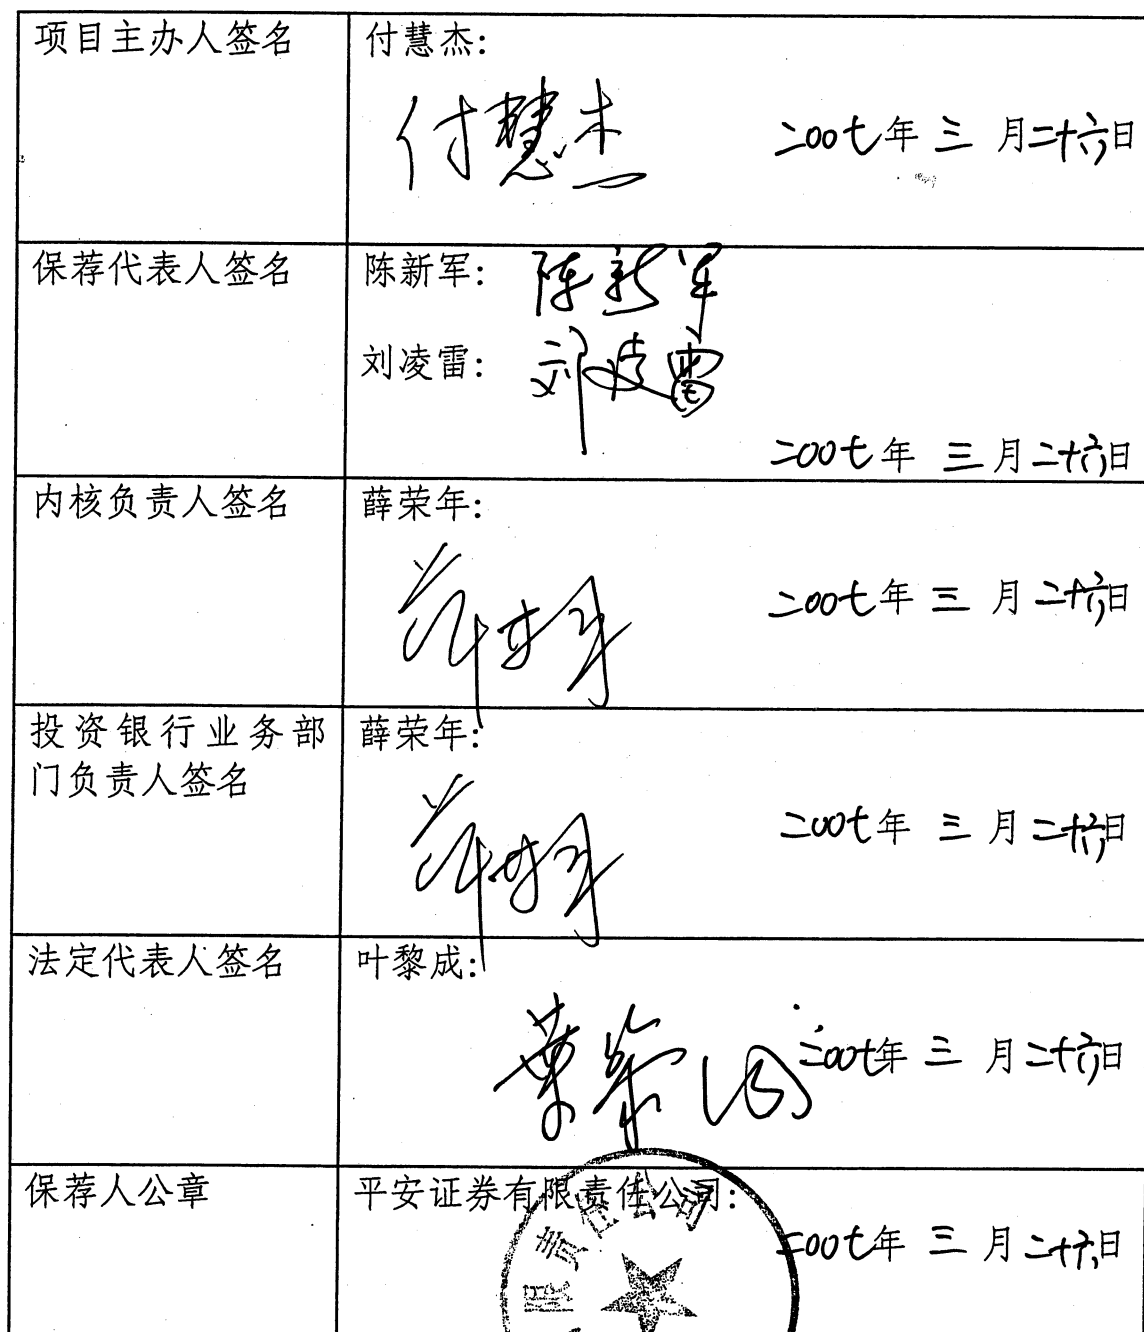 项目主办人签名
付慧杰:
付慧杰
二00七年 三 月二十六日
保荐代表人签名
陈新军: 陈新军
刘凌雷: 刘凌雷
二00七年 三 月二十六日
内核负责人签名
薛荣年:
薛荣年
二00七年 三 月二十六日
投资银行业务部
门负责人签名
薛荣年:
薛荣年
二00七年 三 月二十六日
法定代表人签名
叶黎成:
葉黎成
二00七年 三 月二十六日
保荐人公章
平安证券有限责任公司:
限责任公司
二00七年 三 月二十六日